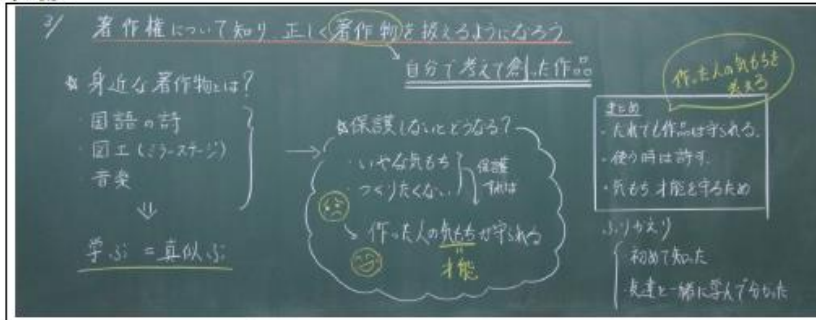 3/ 著作権について知り、正しく著作物を扱えるようになろう
自分で考えて創った作品
身近な著作物とは?
・国語の詩
・図工(ミラーステージ)
音楽
学ぶ=真似ぶ
保護しないとどうなる?
・いやな気もち
・つくりたくない
保護
すれば
作った人の気もちが守られる
才能
作った人の気もちを
考える
まとめ
・だれでも作品は守られる。
・使う時は許す。
・気もち才能を守るため
ふりかえり
初めて知った
友達と一緒に学んで分かった